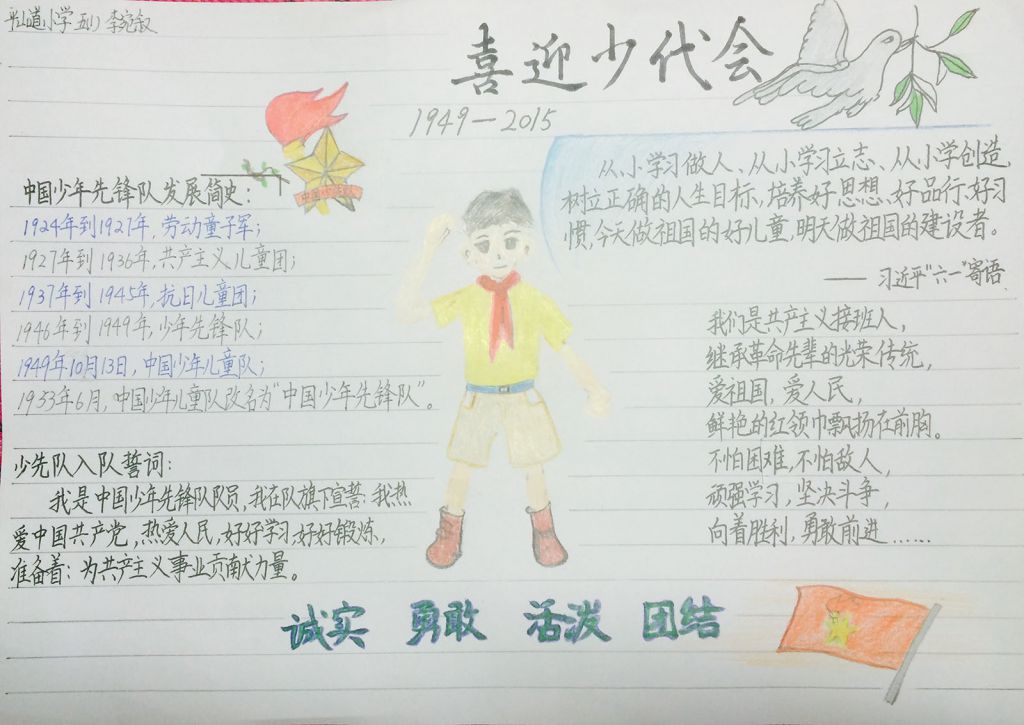 平山道小学 五(1) 李宛叙
喜迎少代会
1949—2015
中国少年先锋队发展简史：
1924年到1927年，劳动童子军；
1927年到1936年，共产主义儿童团；
1937年到1945年，抗日儿童团；
1946年到1949年，少年先锋队；
1949年10月13日，中国少年儿童队；
1933年6月，中国少年儿童队改名为“中国少年先锋队”。
少先队入队誓词：
我是中国少年先锋队队员，我在队旗下宣誓：我热
爱中国共产党，热爱人民，好好学习，好好锻炼，
准备着：为共产主义事业贡献力量。
从小学习做人、从小学习立志、从小学创造
树立正确的人生目标，培养好思想、好品行、好习
惯，今天做祖国的好儿童，明天做祖国的建设者。
——习近平“六一”寄语
我们是共产主义接班人，
继承革命先辈的光荣传统，
爱祖国，爱人民，
鲜艳的红领巾飘扬在前胸。
不怕困难，不怕敌人，
顽强学习，坚决斗争，
向着胜利，勇敢前进……
诚实 勇敢 活泼 团结